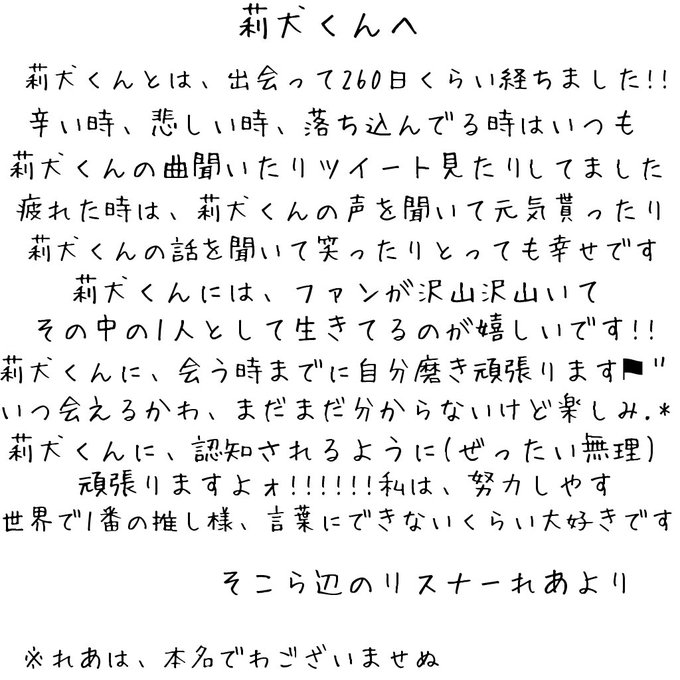 莉犬くんへ
莉犬くんとは、出会って260日くらい経ちました!!
辛い時、悲しい時、落ち込んでる時はいつも
莉犬くんの曲聞いたりツイート見たりしてました
疲れた時は、莉犬くんの声を聞いて元気貰ったり
莉犬くんの話を聞いて笑ったりとっても幸せです
莉犬くんには、ファンが沢山沢山いて
その中の1人として生きてるのが嬉しいです!!
莉犬くんに、会う時までに自分磨き頑張ります⚑"
いつ会えるかわ、まだまだ分からないけど楽しみ.*
莉犬くんに、認知されるように(ぜったい無理)
頑張りますよォ!!!!!!私は、努力しやす
世界で1番の推し様、言葉にできないくらい大好きです
そこら辺のリスナーれあより
※れあは、本名でわございませぬ